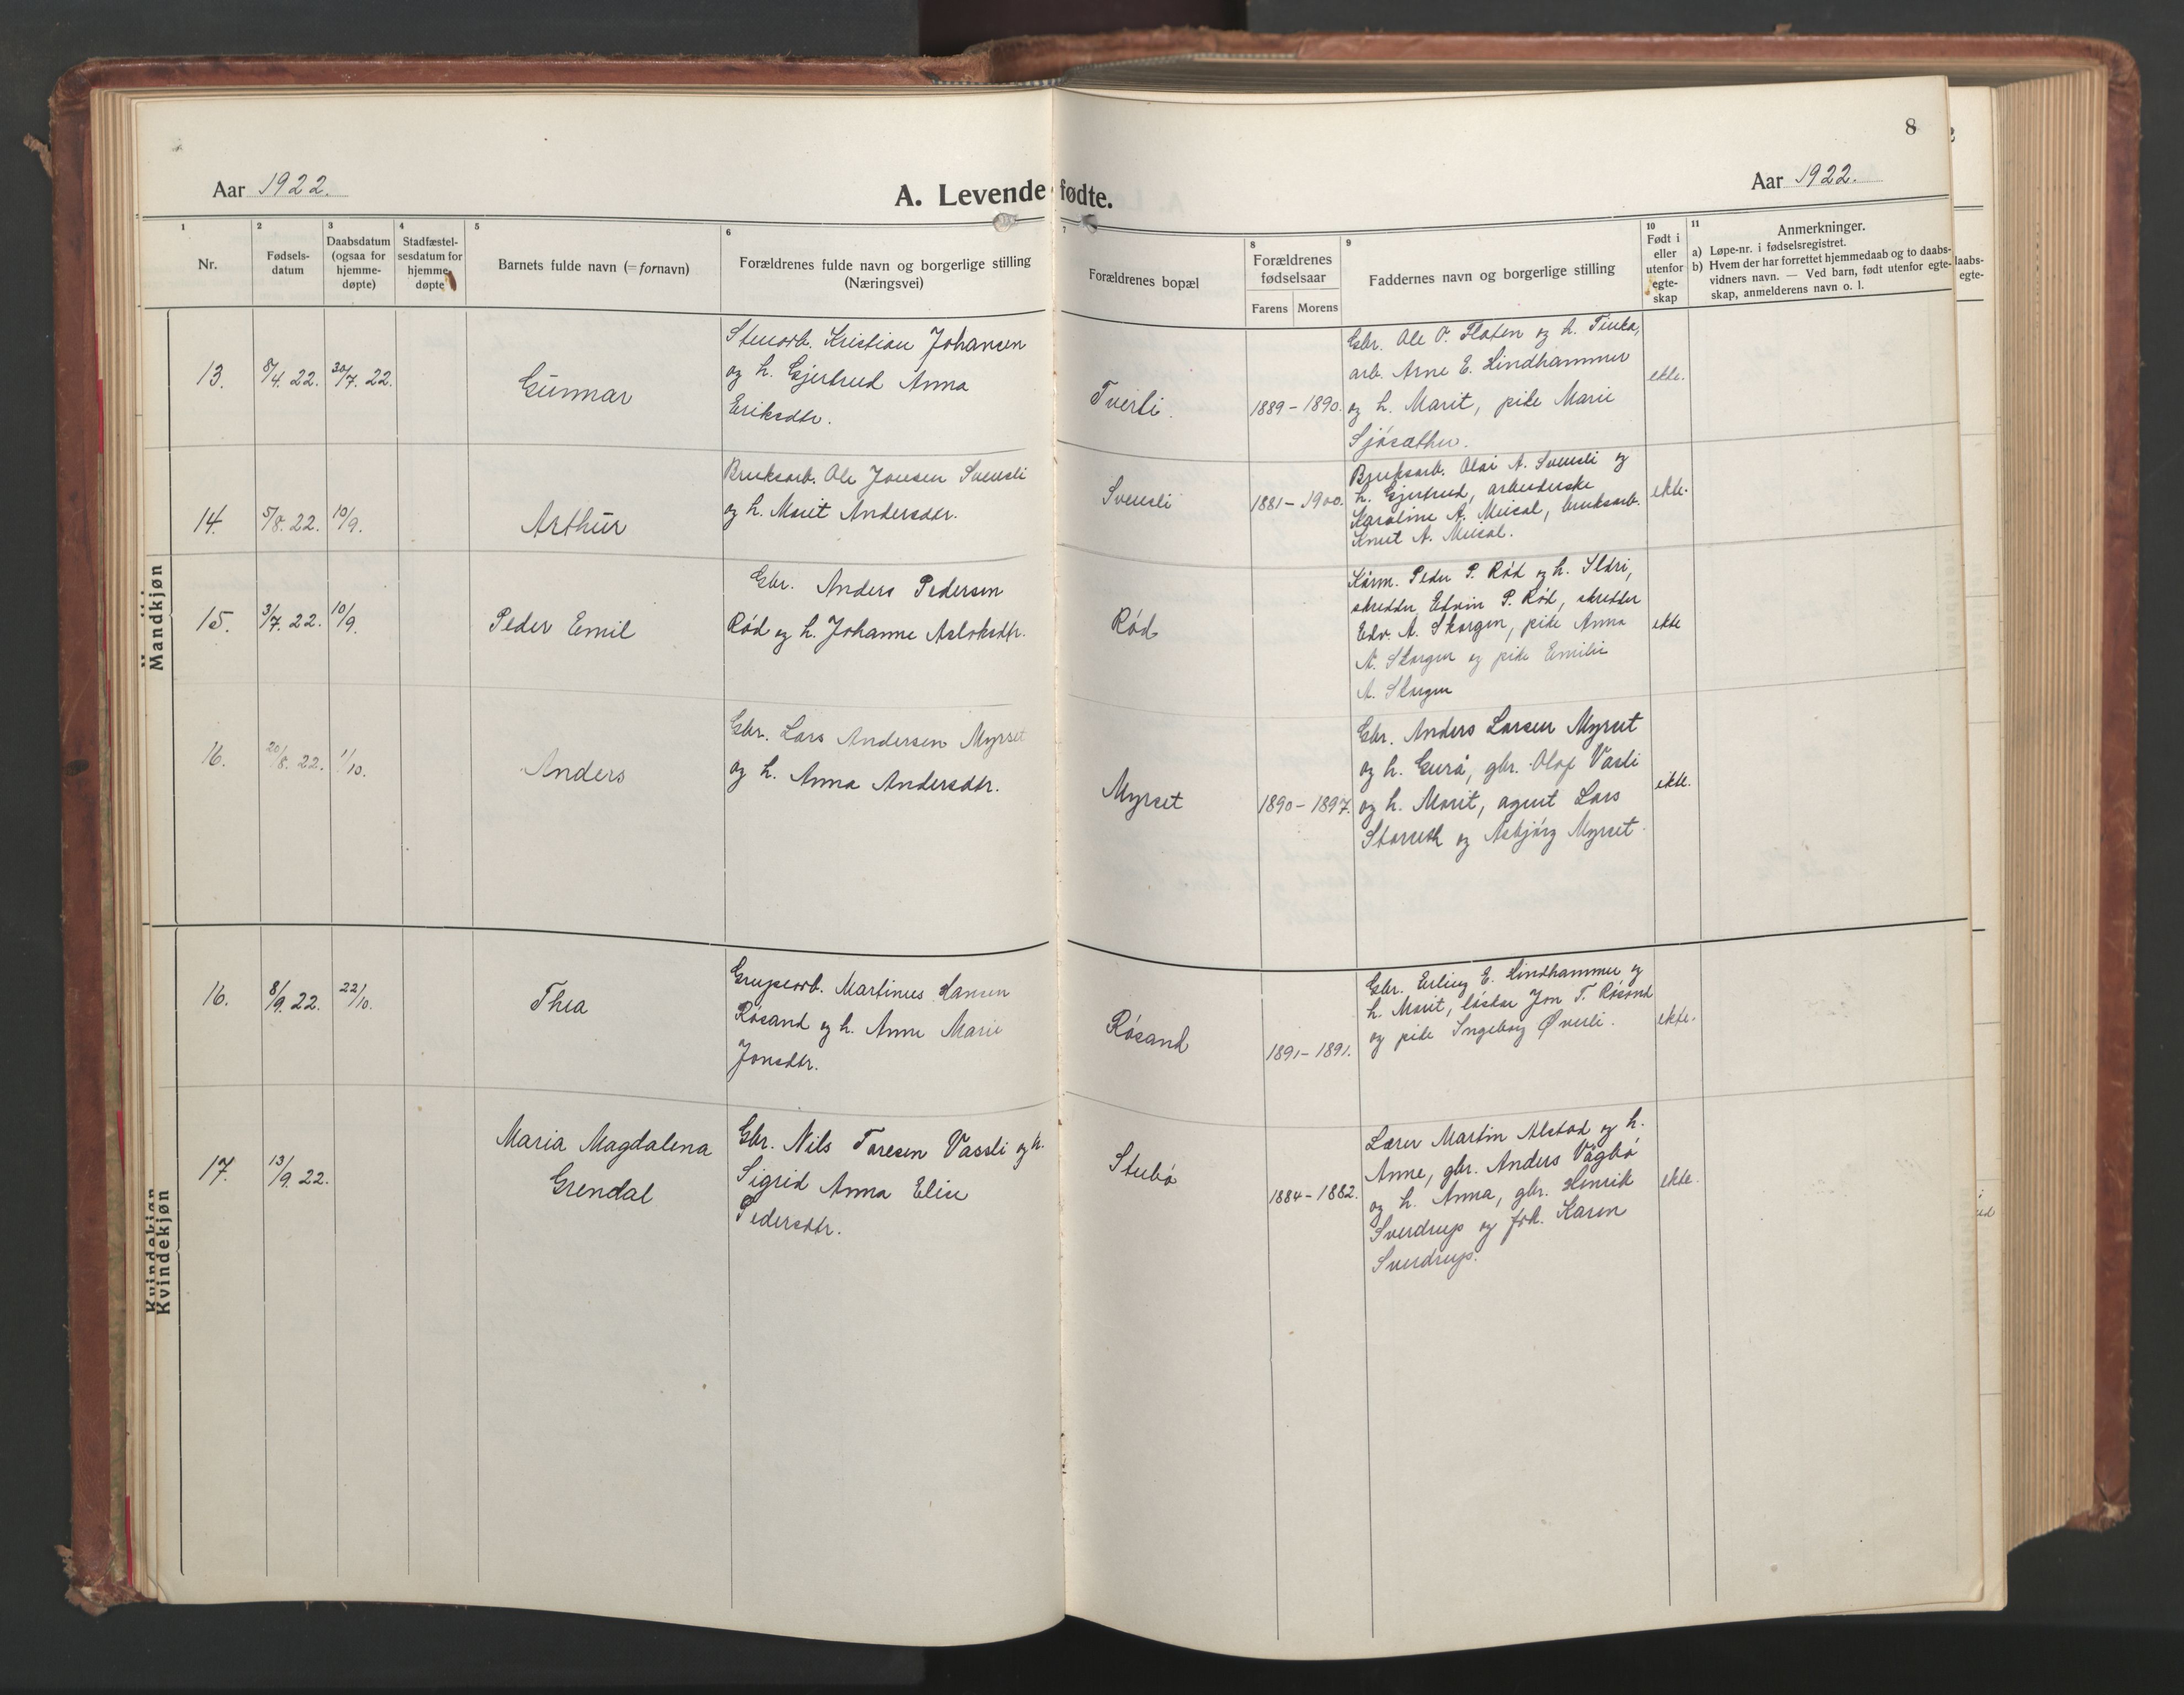 8
Aar 1922.
A. Levende fødte.
Aar 1922.
1
2
3
4
5
6
7
8
9
10
11
Nr.
Fødsels-
datum
Daabsdatum
(ogsaa for
hjemme-
døpte)
Stadfæstel-
sesdatum for
hjemme-
døpte
Barnets fulde navn (= fornavn)
Forældrenes fulde navn og borgerlige stilling
(Næringsvei)
Forældrenes bopæl
Forældrenes
fødselsaar
Farens Morens
Faddernes navn og borgerlige stilling
Født i
eller
utenfor
egte-
skap
Anmerkninger.
a) Løpe-nr. i fødselsregistret.
b) Hvem der har forrettet hjemmedaab og to daabs-
vidners navn. — Ved barn, født utenfor egte-
skap, anmelderens navn o. l.
Mandkjøn
13.
8/4. 22.
30/7. 22.
Gunnar
Stenarb. Kristian Johansen
og h. Gjertrud Anna
Eriksdtr.
Tverli.
1889 - 1890.
Gbr. Ole O. Flaten og h. Tinka,
arb. Arne E. Lindhammer
og h. Marit, pike Marie
Sjøsæther.
ekte.
14.
5/8. 22.
10/9.
Arthur
Bruksarb. Ole Jonsen Svensli
og h. Marit Andersdtr.
Svensli
1881 - 1900.
Bruksarb. Olai A. Svensli og
h. Gjertrud, arbeiderske
Karoline A. Meisal, bruksarb.
Knut A. Meisal.
ekte.
15.
3/7. 22.
10/9.
Peder Emil
Gbr. Anders Pedersen
Rød og h. Johanne Aslaksdtr.
Rød
Kårm. Peder P. Rød og h. Ildri,
skredder Edvin P. Rød, skredder
Edv. A. Skorgen, pike Anna
A. Skorgen og pike Emilie
A. Skorgen
ekte
16.
20/8. 22.
1/10.
Anders
Gbr. Lars Andersen Myrset
og h. Anna Andersdtr.
Myrset
1890 - 1897.
Gbr. Anders Larsen Myrset
og h. Gurå, gbr. Olaf Vasli
og h. Marit, agent Lars
og Asbjørg Myrset.
ekte.
Kvindekjøn
Kvindekjøn
16.
8/9. 22.
22/10.
Thea
Grubearb. Martinus Hansen
Røsand og h. Anne Marie
Jonsdtr.
Røsand
1891 - 1891.
Gbr. Erling E. Lindhammer og
h. Marit, Jon T. Røsand
og pike Ingeborg Øverli.
ekte.
17.
13/9. 22.
Maria Magdalena
Grendal
Gbr. Nils Toresen Vassli og h.
Sigrid Anna Elise
Pedersdtr.
Stubø
1884 - 1882.
Lærer Martin Alstad og h.
Anne, gbr. Anders Vågbø
og h. Anna, gbr. Henrik
Sverdrup og frk. Karen
Sverdrup.
ekte.
laabs-
egte-